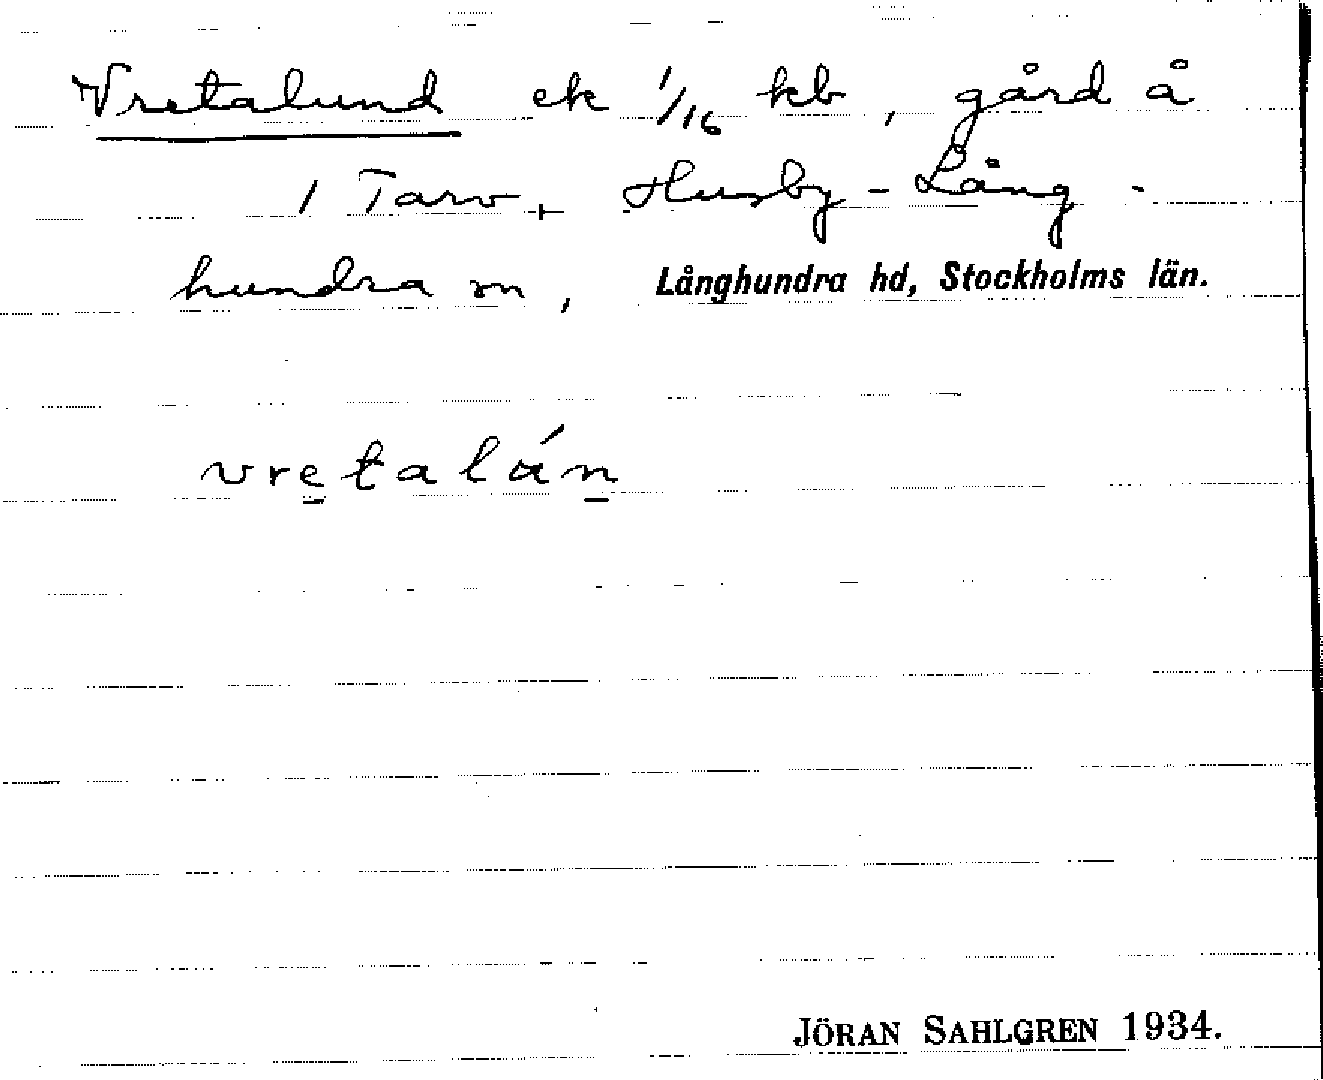 Vretalund ek 1/16 kb, gård å
1 Tarv, Husby-Lång-
hundra sn, Långhundra hd, Stockholms län.
vretalán
JÖRAN SAHLGREN 1934.